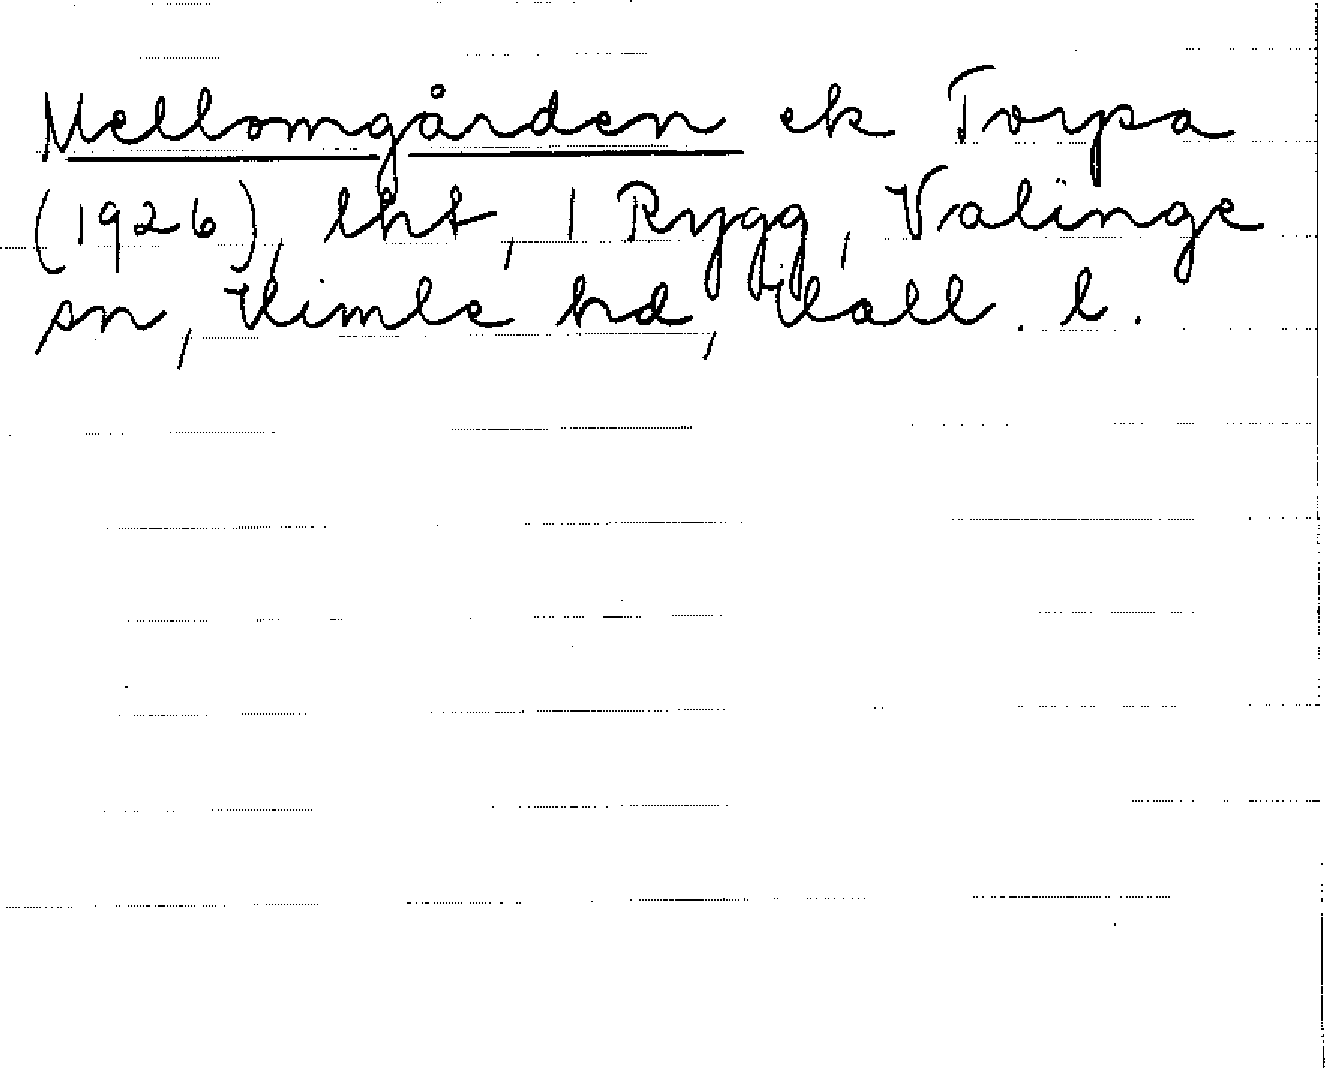 Mellomgården ek Torpa
(1926), lht, 1 Rygg, Valinge
sn, Himle hd, Hall. l.